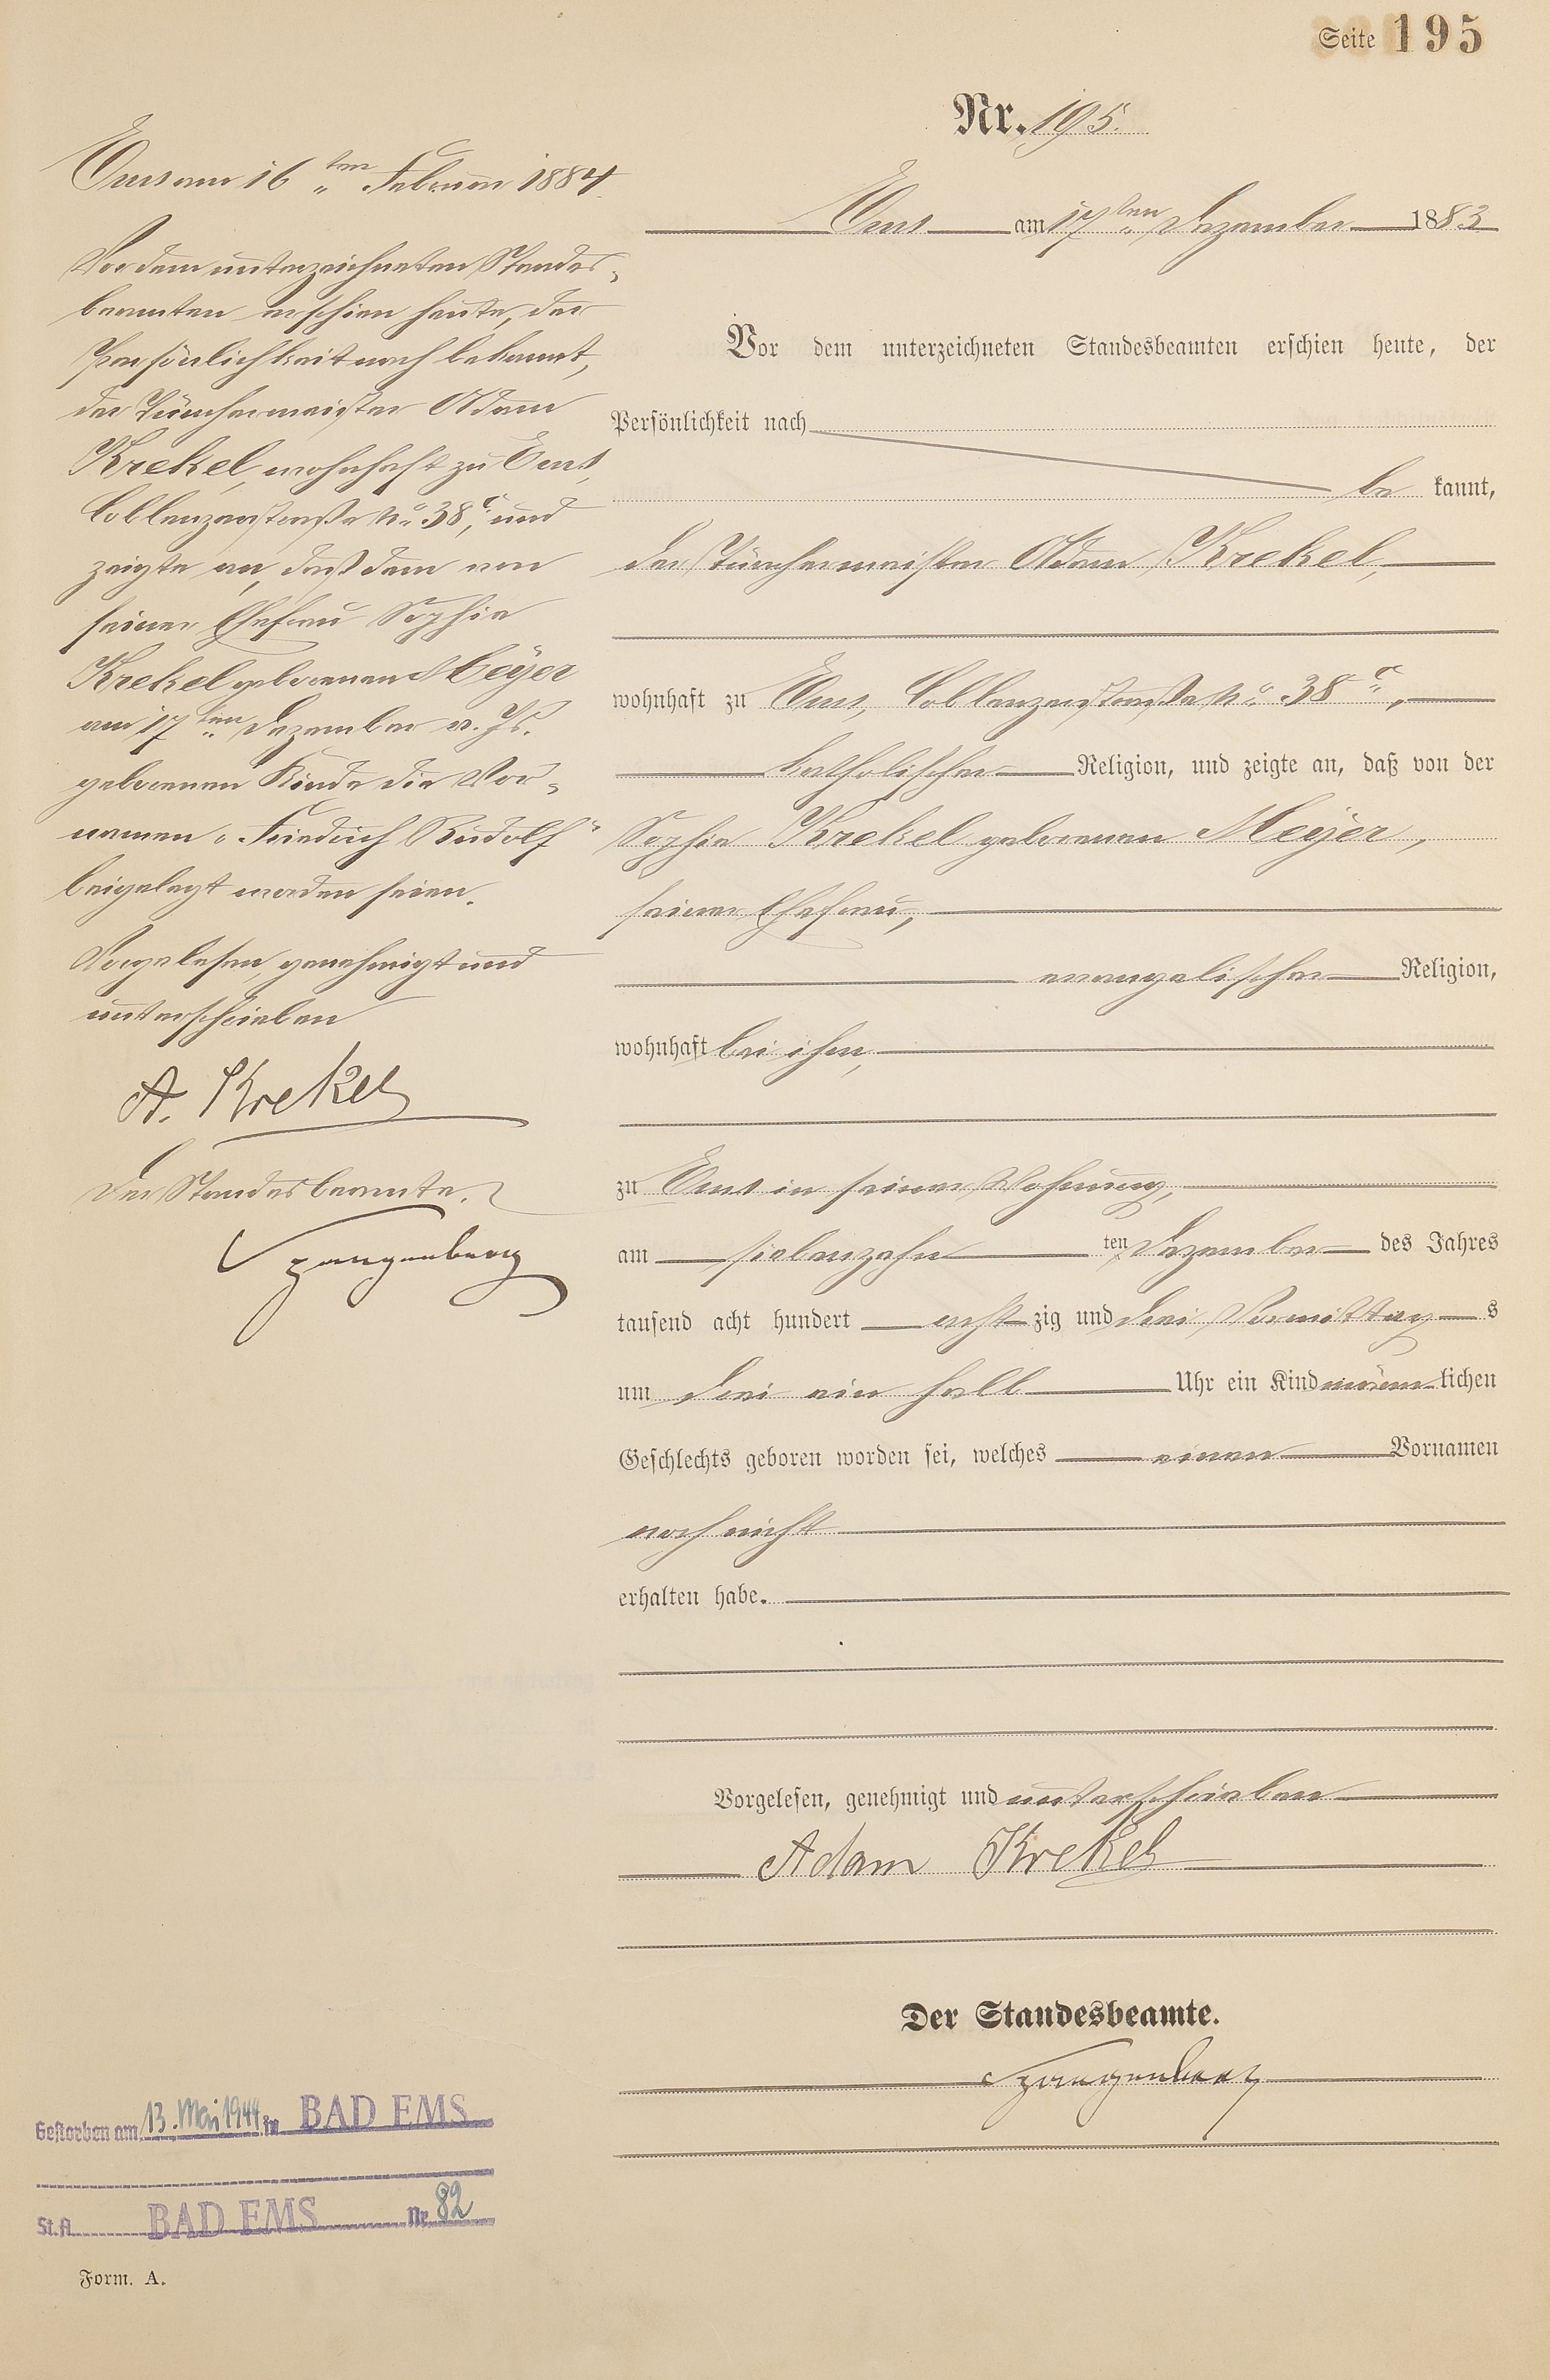 Seite 195
Nr. 195.
Ems am 17ten Dezember 1883
Vor dem unterzeichneten Standesbeamten erschien heute, der
Persönlichkeit nach
be kannt,
der Tünchermeister Adam Krekel,
wohnhaft zu Ems, Coblenzerstraße No. 38c,
katholischer Religion, und zeigte an, daß von der
Sophie Krekel geborenen Meÿer,
seiner Ehefrau,
evangelischer Religion,
wohnhaft bei ihm,
zu Ems in seiner Wohnung,
am siebenzehn ten Dezember des Jahres
tausend acht hundert acht zig und drei Vormittag s
um drei ein halb Uhr ein Kind männ lichen
Geschlechts geboren worden sei, welches einen Vornamen
noch nicht
erhalten habe.
Vorgelesen, genehmigt und unterschrieben
Adam Krekel
Der Standesbeamte.
Spangenberg
Ems am 16ten Februar 1884.
Vor dem unterzeichneten Standes-
beamten erschien heute, der
Persönlichkeit nach bekannt,
der Tünchermeister Adam
Krekel, wohnhaft zu Ems,
Coblenzerstraße No. 38c, und
zeigte an, daß dem von
seiner Ehefrau Sophie
Krekel geborenen Meÿer
am 17ten Dezember v. Js.
geborenen Kinde die Vor-
namen „Friedrich Rudolf"
beigelegt worden seien.
Vorgelesen, genehmigt und
unterschrieben
A. Krekel
Der Standesbeamte.
Spangenberg
Gestorben am 13. Mai 1944 in BAD EMS
St.A. BAD EMS Nr. 82
Form. A.